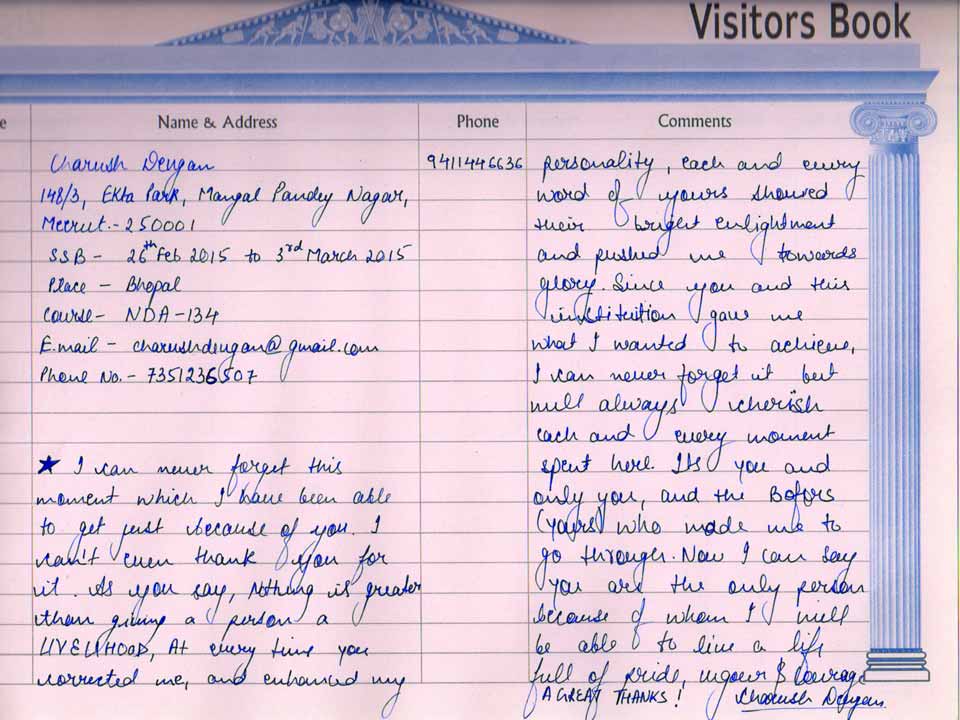 Visitors Book
e
Name & Address
Phone
Comments
Charush Dengan
148/3, Ekta Park, Mangal Pandey Nagar,
Meerut.- 250001
SSB - 26th Feb 2015 to 3rd March 2015
Place - Bhopal
Course- NDA-134
E.mail - charushdengan@gmail.com
Phone No. - 7351236507
9411446636
★ I can never forget this
moment which I have been able
to get just because of you. I
can't even thank you for
it. As you say, Nothing is greater
than giving a person a
LIVELIHOOD, At every time you
corrected me, and enhanced my
personality, each and every
word of yours showed
their bright enlightment
and pushed me towards
glory. Since you and this
institution gave me
what I wanted to achieve,
I can never forget it but
will always cherish
each and every moment
spent here. Its you and
only you, and the Bofors
(yours) who made me to
go through. Now I can say
you are the only person
because of whom I will
be able to live a life
full of pride, vigour & courage
A GREAT THANKS! Charush Dengan